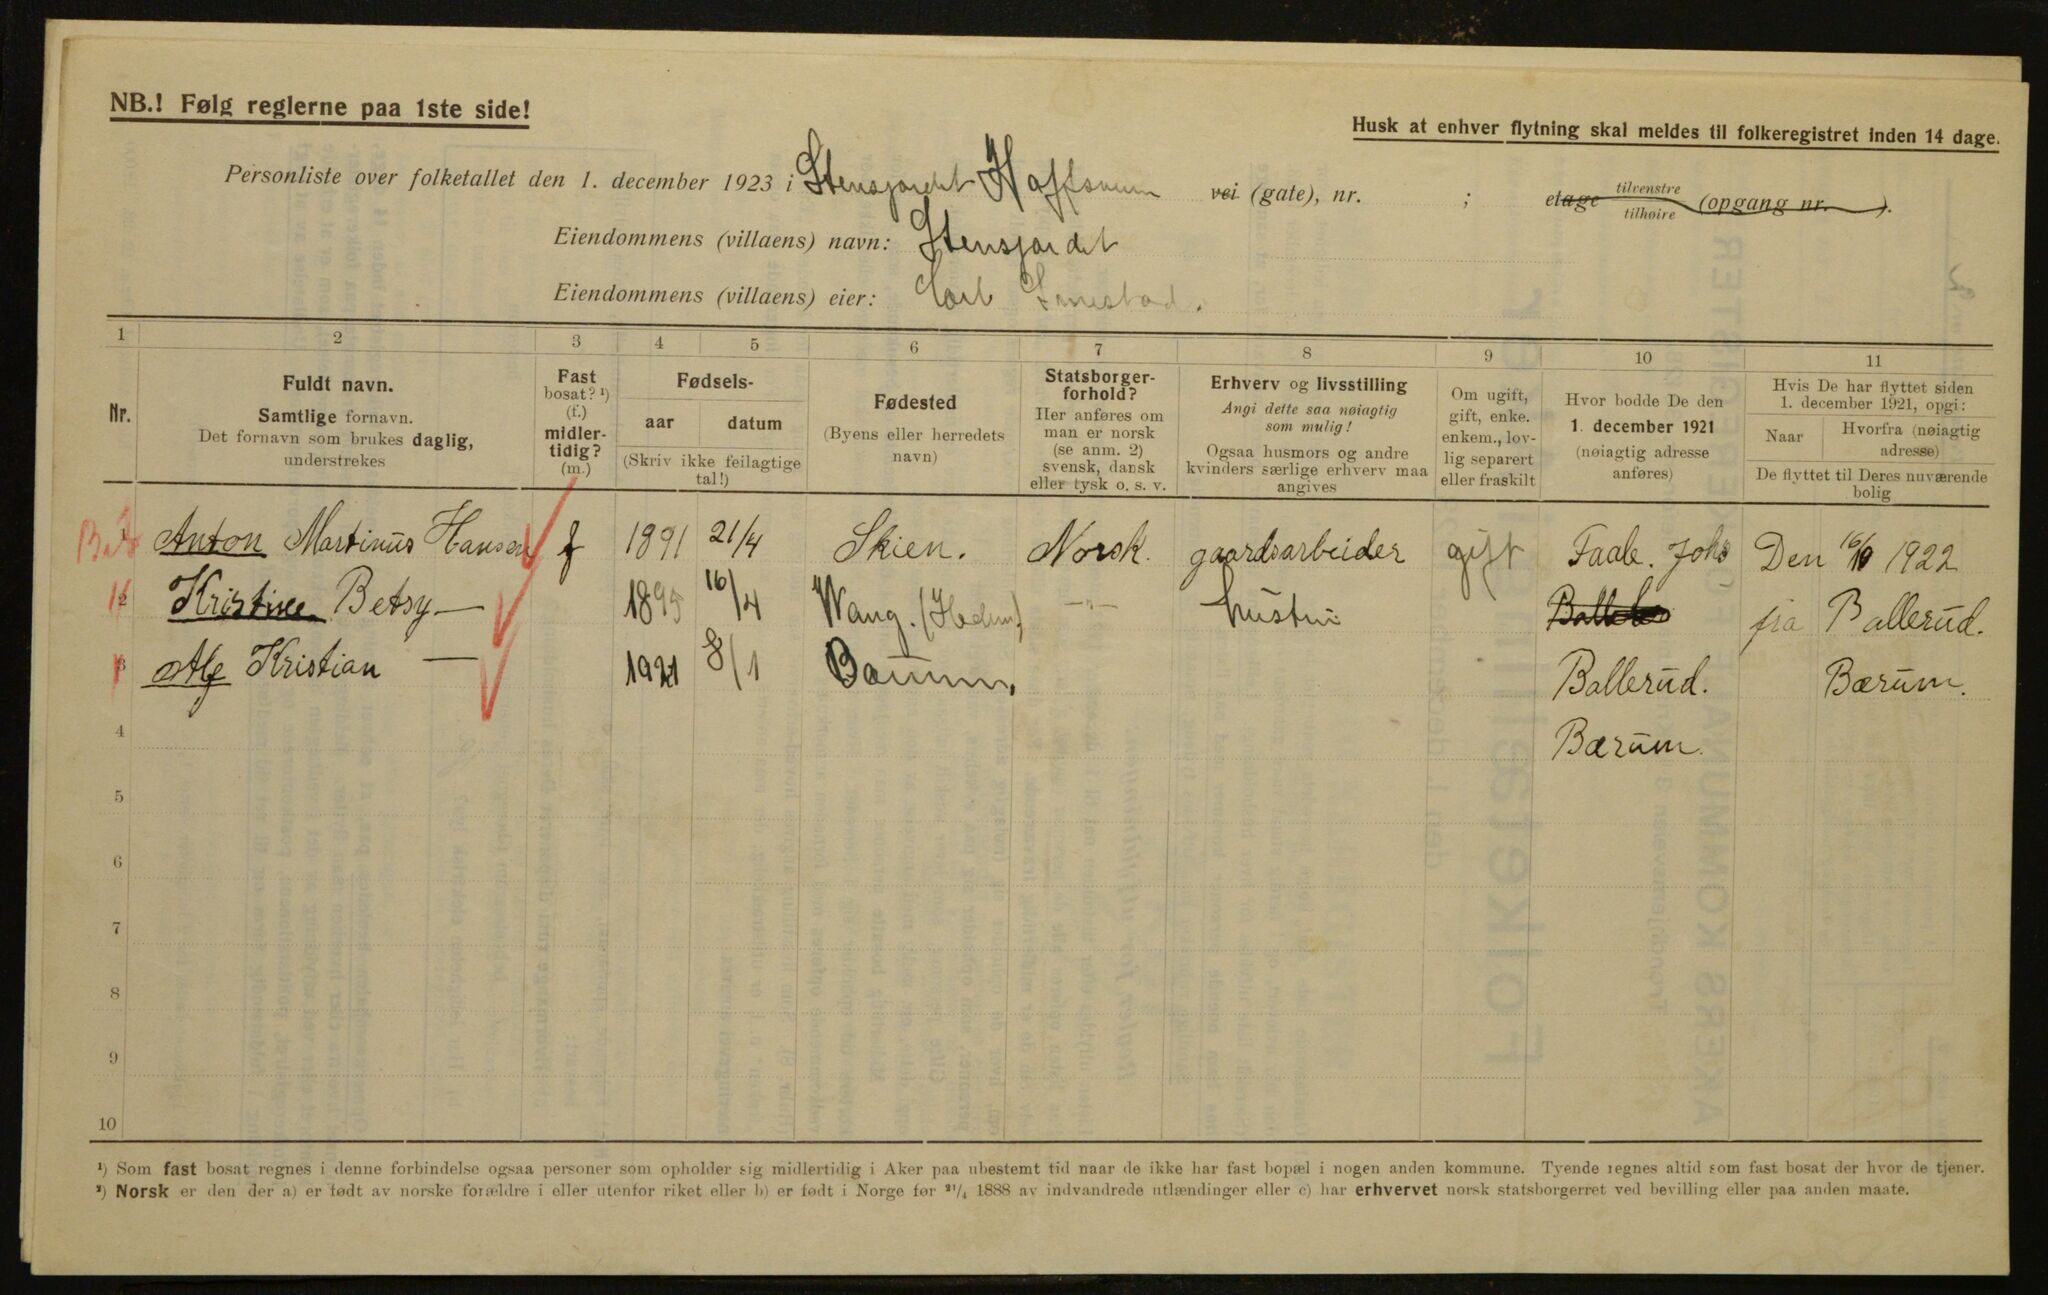 NB.! Følg reglerne paa 1ste side!
Husk at enhver flytning skal meldes til folkeregistret inden 14 dage.
Personliste over folketallet den 1. december 1923 i Stensjordet vei (gate), nr. ; etage tilvenstre tilhøire (opgang nr. ).
Eiendommens (villaens) navn: Stensjordet
Eiendommens (villaens) eier: Carl
1 2 3 4 5 6 7 8 9 10 11
Nr.
Fuldt navn.
Samtlige fornavn.
Det fornavn som brukes daglig,
understrekes
Fast
bosat? ¹)
(f.)
midler-
tidig?
(m.)
Fødsels-
aar datum
(Skriv ikke feilagtige
tal!)
Fødested
(Byens eller herredets
navn)
Statsborger-
forhold?
Her anføres om
man er norsk
(se anm. 2)
svensk, dansk
eller tysk o. s. v.
Erhverv og livsstilling
Angi dette saa nøiagtig
som mulig!
Ogsaa husmors og andre
kvinders særlige erhverv maa
angives
Om ugift,
gift, enke.
enkem., lov-
lig separert
eller fraskilt
Hvor bodde De den
1. december 1921
(nøiagtig adresse
anføres)
Hvis De har flyttet siden
1. december 1921, opgi:
Naar Hvorfra (nøiagtig
adresse)
De flyttet til Deres nuværende
bolig
1 Anton Martinus Hansen f 1891 21/4 Skien. Norsk. gaardsarbeider gift Den 1922
2 Kristine Betsy — 1895 16/4 Wang. (Hedm.) —"— hustru fra Ballerud.
3 Alf Kristian — 1921 8/1 Bærum. Ballerud. Bærum.
4 Bærum.
5
6
7
8
9
10
¹) Som fast bosat regnes i denne forbindelse ogsaa personer som opholder sig midlertidig i Aker paa ubestemt tid naar de ikke har fast bopæl i nogen anden kommune. Tyende regnes altid som fast bosat der hvor de tjener.
²) Norsk er den der a) er født av norske forældre i eller utenfor riket eller b) er født i Norge før ²¹/₄ 1888 av indvandrede utlændinger eller c) har erhvervet norsk statsborgerret ved bevilling eller paa anden maate.